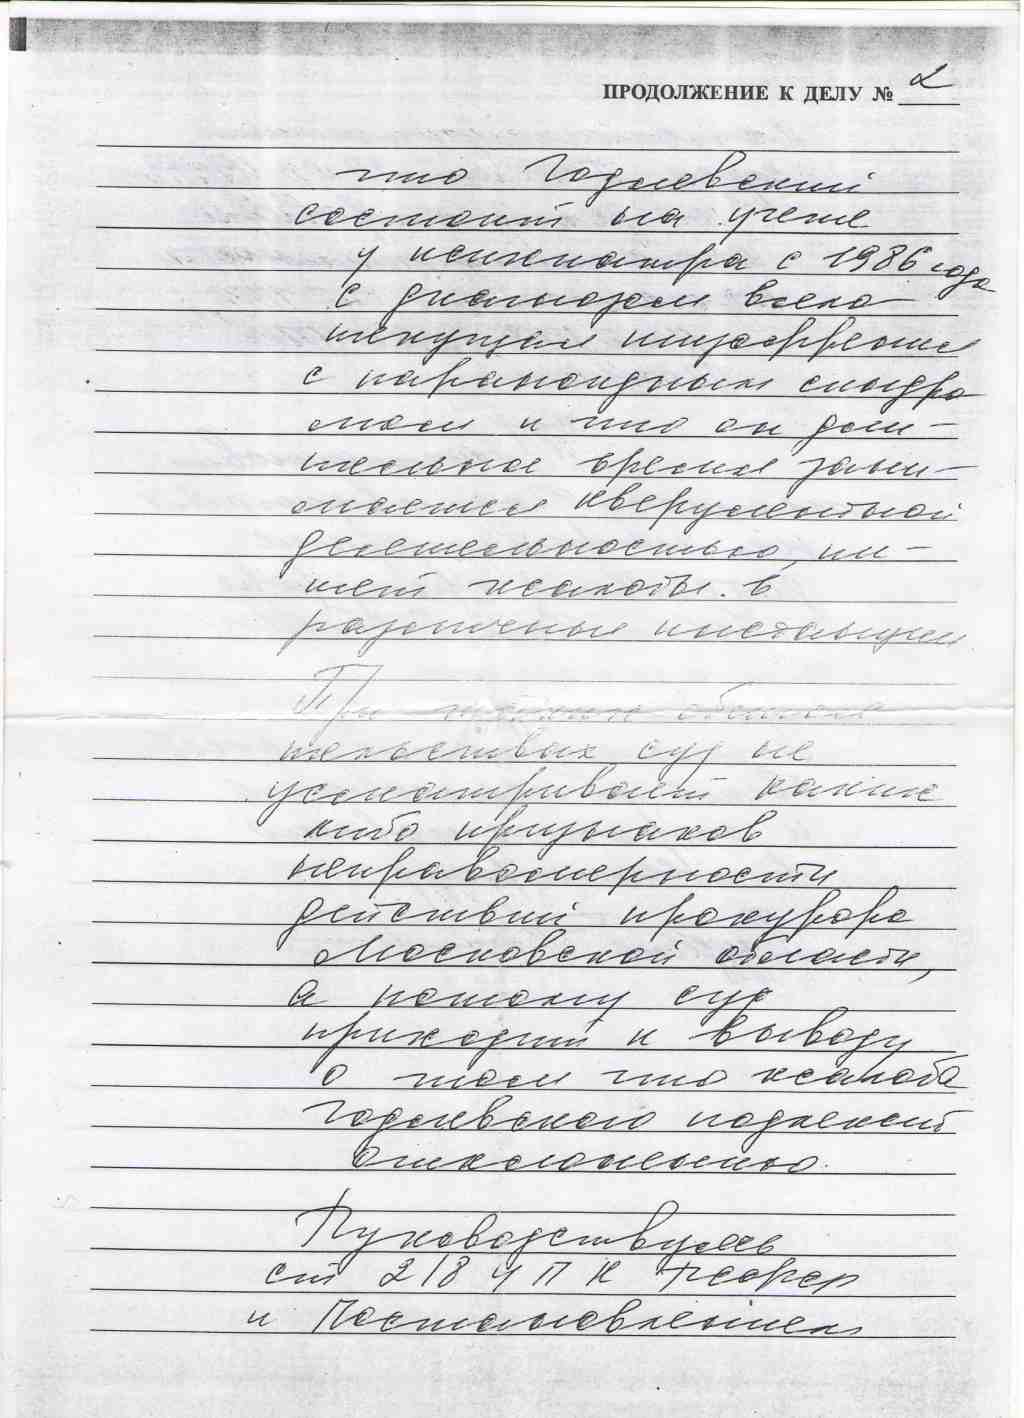 ПРОДОЛЖЕНИЕ К ДЕЛУ № 2
что Годлевский
состоит на учете
у психиатра с 1986 года
с диагнозом вяло
текущая шизофрения
с параноидным синдро
мом и что он дли-
тельное время зани-
мается кверулентной
деятельностью, пи-
шет жалобы в
различные инстанции
При таких обстоя
тельствах суд не
усматривает каких
либо признаков
неправомерности
действий прокурора
Московской области,
а потому суд
приходит к выводу
о том что жалоба
Годлевского подлежит
отклонению.
Руководствуясь
ст 218 УПК РСФСР
и Постановлением